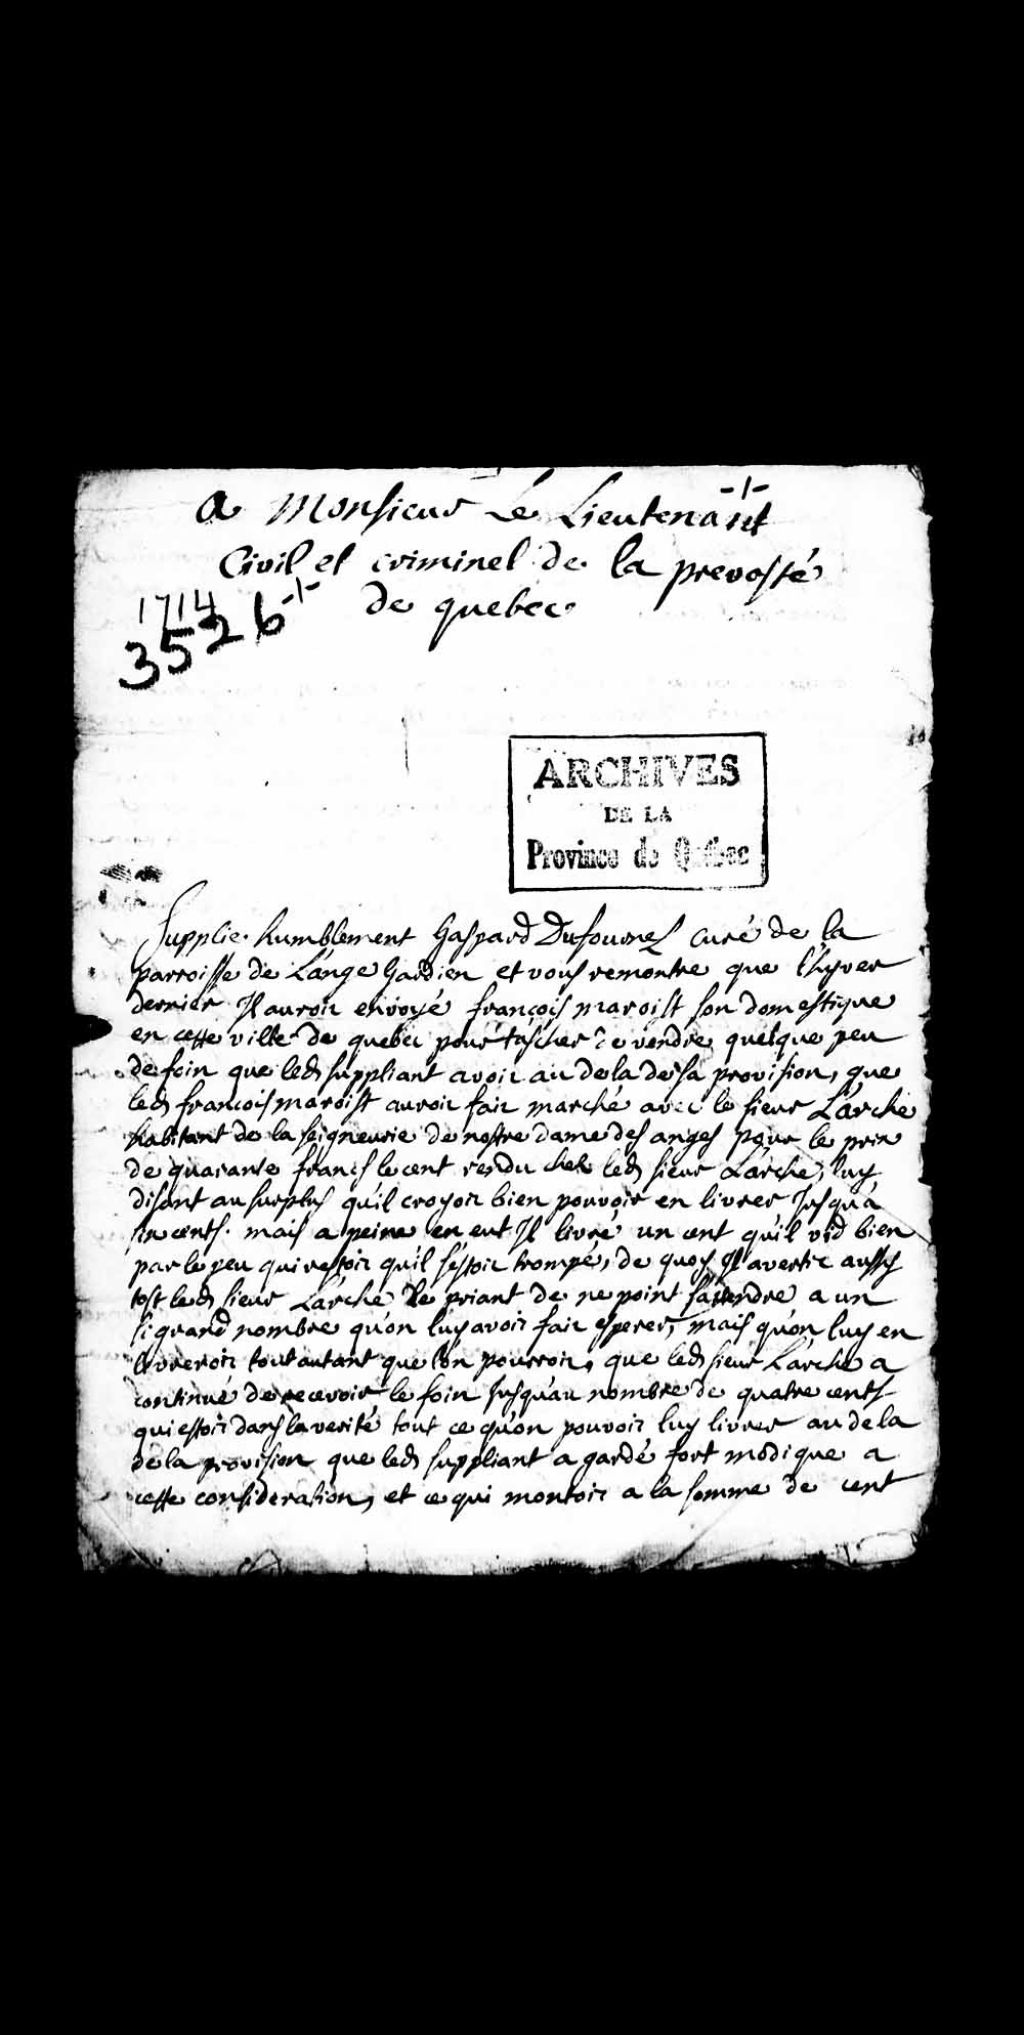 -/-
A Monsieur Le Lieutenant
Civil et criminel de la prevosté
de quebec
1714
3526 -/-
ARCHIVES
DE LA
Province de Québec
Supplie humblement Gaspard Dufournel curé de la
parroisse de L'ange Gardien et vous remontre que l'hyver
dernier Il auroit envoyé françois maroist son domestique
en cette ville de quebec pour tascher de vendre quelque peu
de foin que led suppliant avoit au dela de sa provision, que
led francois maroist auroit fait marché avec le sieur L'arche
habitant de la seigneurie de nostre dame des anges pour le prix
de quarante francs le cent rendu chez led sieur L'arche, luy
disant au surplus qu'il croyoit bien pouvoir en livrer Jusqu'a
six cents. mais a peine en eut Il livré un cent qu'il vid bien
par le peu qui restoit qu'il s'estoit trompé, de quoy Il avertit aussy
tost led sieur L'arche le priant de ne point s'attendre a un
si grand nombre qu'on luy avoit fait esperer, mais qu'on luy en
livreroit tout autant que l'on pourroit, que led sieur L'arche a
continué de recevoir le foin Jusqu'au nombre de quatre cents
qui estoit dans la verité tout ce qu'on pouvoit luy livrer au dela
de la provision que led suppliant a gardé fort modique a
cette consideration, et ce qui montoit a la somme de cent